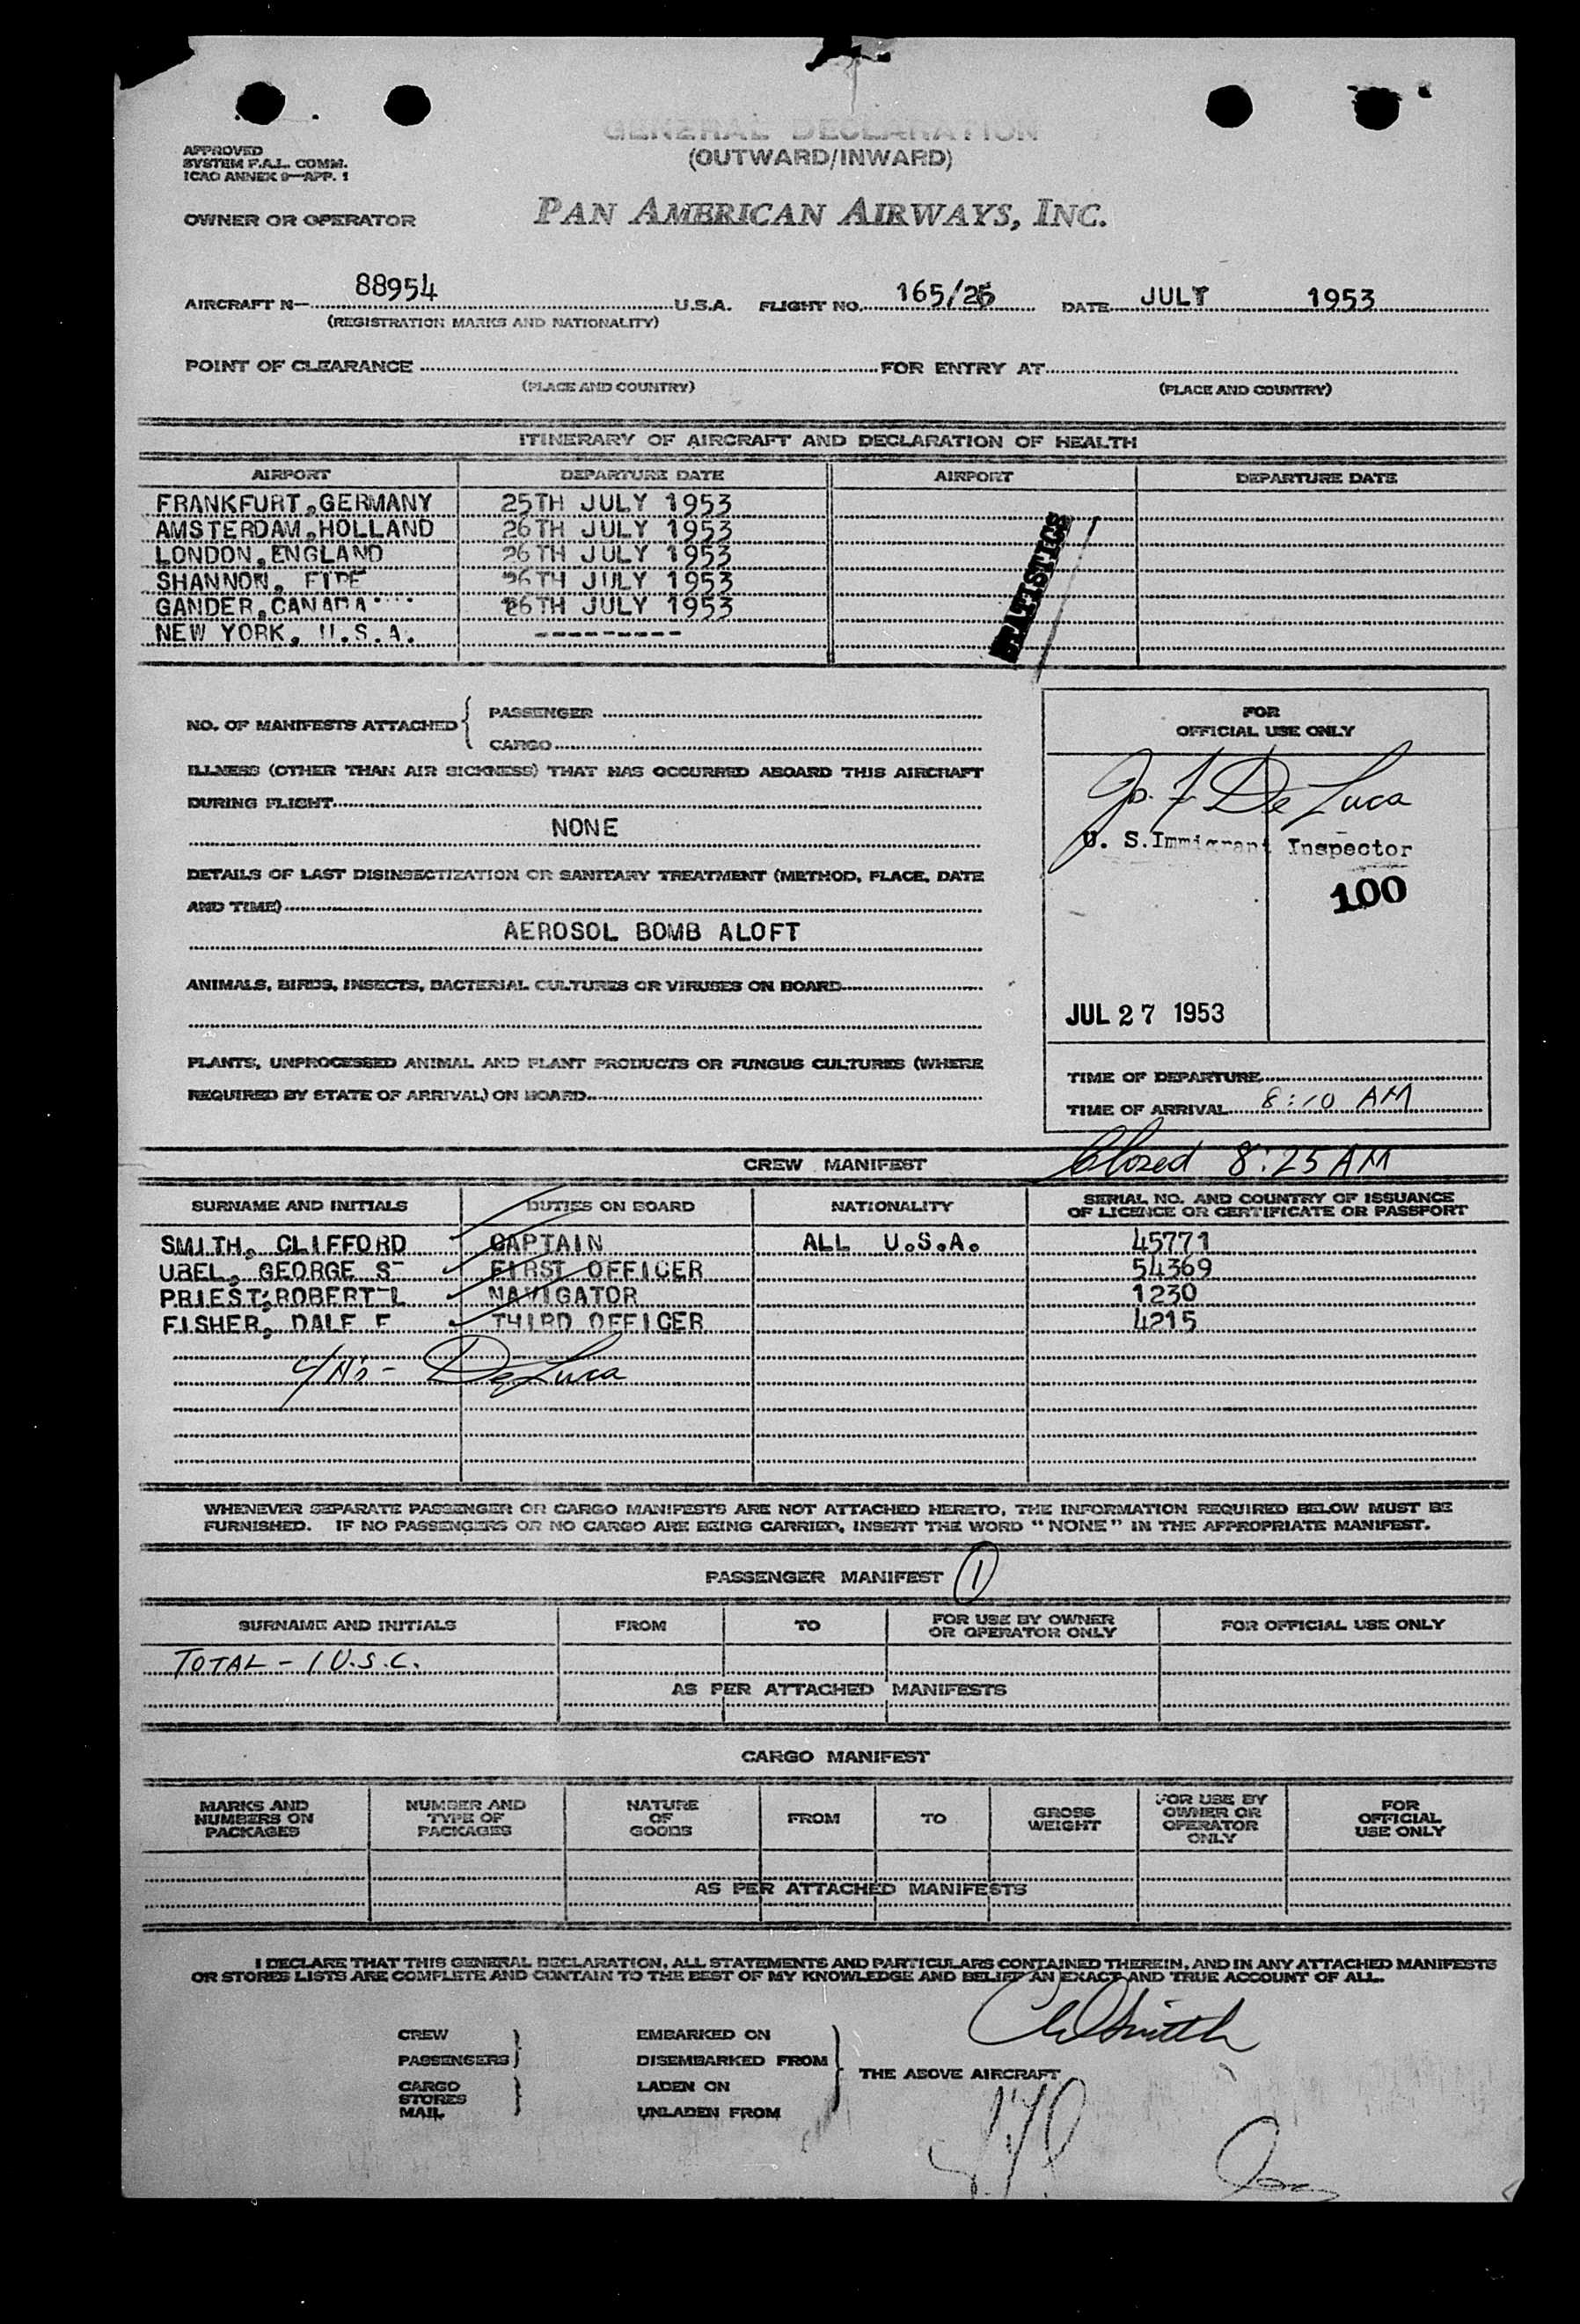 GENERAL DECLARATION
(OUTWARD/INWARD)
APPROVED
SYSTEM F.A.L. COMM.
ICAO ANNEX 9—APP. 1
OWNER OR OPERATOR PAN AMERICAN AIRWAYS, INC.
AIRCRAFT N— 88954 U.S.A. FLIGHT NO. 165/25 DATE JULY 1953
(REGISTRATION MARKS AND NATIONALITY)
POINT OF CLEARANCE FOR ENTRY AT
(PLACE AND COUNTRY) (PLACE AND COUNTRY)
ITINERARY OF AIRCRAFT AND DECLARATION OF HEALTH
AIRPORT DEPARTURE DATE AIRPORT DEPARTURE DATE
FRANKFURT,GERMANY 25TH JULY 1953
AMSTERDAM,HOLLAND 26TH JULY 1953
LONDON,ENGLAND 26TH JULY 1953
SHANNON, EIRE 26TH JULY 1953
GANDER,CANADA 26TH JULY 1953
NEW YORK, U.S.A. ---------
STATISTICS
NO. OF MANIFESTS ATTACHED { PASSENGER
CARGO
FOR
OFFICIAL USE ONLY
ILLNESS (OTHER THAN AIR SICKNESS) THAT HAS OCCURRED ABOARD THIS AIRCRAFT
DURING FLIGHT
NONE
Jo. F De Luca
U. S. Immigrant Inspector
100
DETAILS OF LAST DISINSECTIZATION OR SANITARY TREATMENT (METHOD, PLACE, DATE
AND TIME)
AEROSOL BOMB ALOFT
ANIMALS, BIRDS, INSECTS, BACTERIAL CULTURES OR VIRUSES ON BOARD
JUL 27 1953
PLANTS, UNPROCESSED ANIMAL AND PLANT PRODUCTS OR FUNGUS CULTURES (WHERE
REQUIRED BY STATE OF ARRIVAL) ON BOARD
TIME OF DEPARTURE
TIME OF ARRIVAL 8:10 AM
Closed 8:25 AM
CREW MANIFEST
SURNAME AND INITIALS DUTIES ON BOARD NATIONALITY SERIAL NO. AND COUNTRY OF ISSUANCE
OF LICENCE OR CERTIFICATE OR PASSPORT
SMITH, CLIFFORD CAPTAIN ALL U.S.A. 45771
UBEL, GEORGE S FIRST OFFICER 54369
PRIEST,ROBERT L NAVIGATOR 1230
FISHER, DALE E THIRD OFFICER 4215
De Luca
WHENEVER SEPARATE PASSENGER OR CARGO MANIFESTS ARE NOT ATTACHED HERETO, THE INFORMATION REQUIRED BELOW MUST BE
FURNISHED. IF NO PASSENGERS OR NO CARGO ARE BEING CARRIED, INSERT THE WORD "NONE" IN THE APPROPRIATE MANIFEST.
PASSENGER MANIFEST 1
SURNAME AND INITIALS FROM TO FOR USE BY OWNER
OR OPERATOR ONLY FOR OFFICIAL USE ONLY
TOTAL - 1 U.S.C.
AS PER ATTACHED MANIFESTS
CARGO MANIFEST
MARKS AND
NUMBERS ON
PACKAGES
NUMBER AND
TYPE OF
PACKAGES
NATURE
OF
GOODS
FROM
TO
GROSS
WEIGHT
FOR USE BY
OWNER OR
OPERATOR
ONLY
FOR
OFFICIAL
USE ONLY
AS PER ATTACHED MANIFESTS
I DECLARE THAT THIS GENERAL DECLARATION, ALL STATEMENTS AND PARTICULARS CONTAINED THEREIN, AND IN ANY ATTACHED MANIFESTS
OR STORES LISTS ARE COMPLETE AND CONTAIN TO THE BEST OF MY KNOWLEDGE AND BELIEF AN EXACT AND TRUE ACCOUNT OF ALL.
CREW
PASSENGERS
CARGO
STORES
MAIL
EMBARKED ON
DISEMBARKED FROM
LADEN ON
UNLADEN FROM
THE ABOVE AIRCRAFT